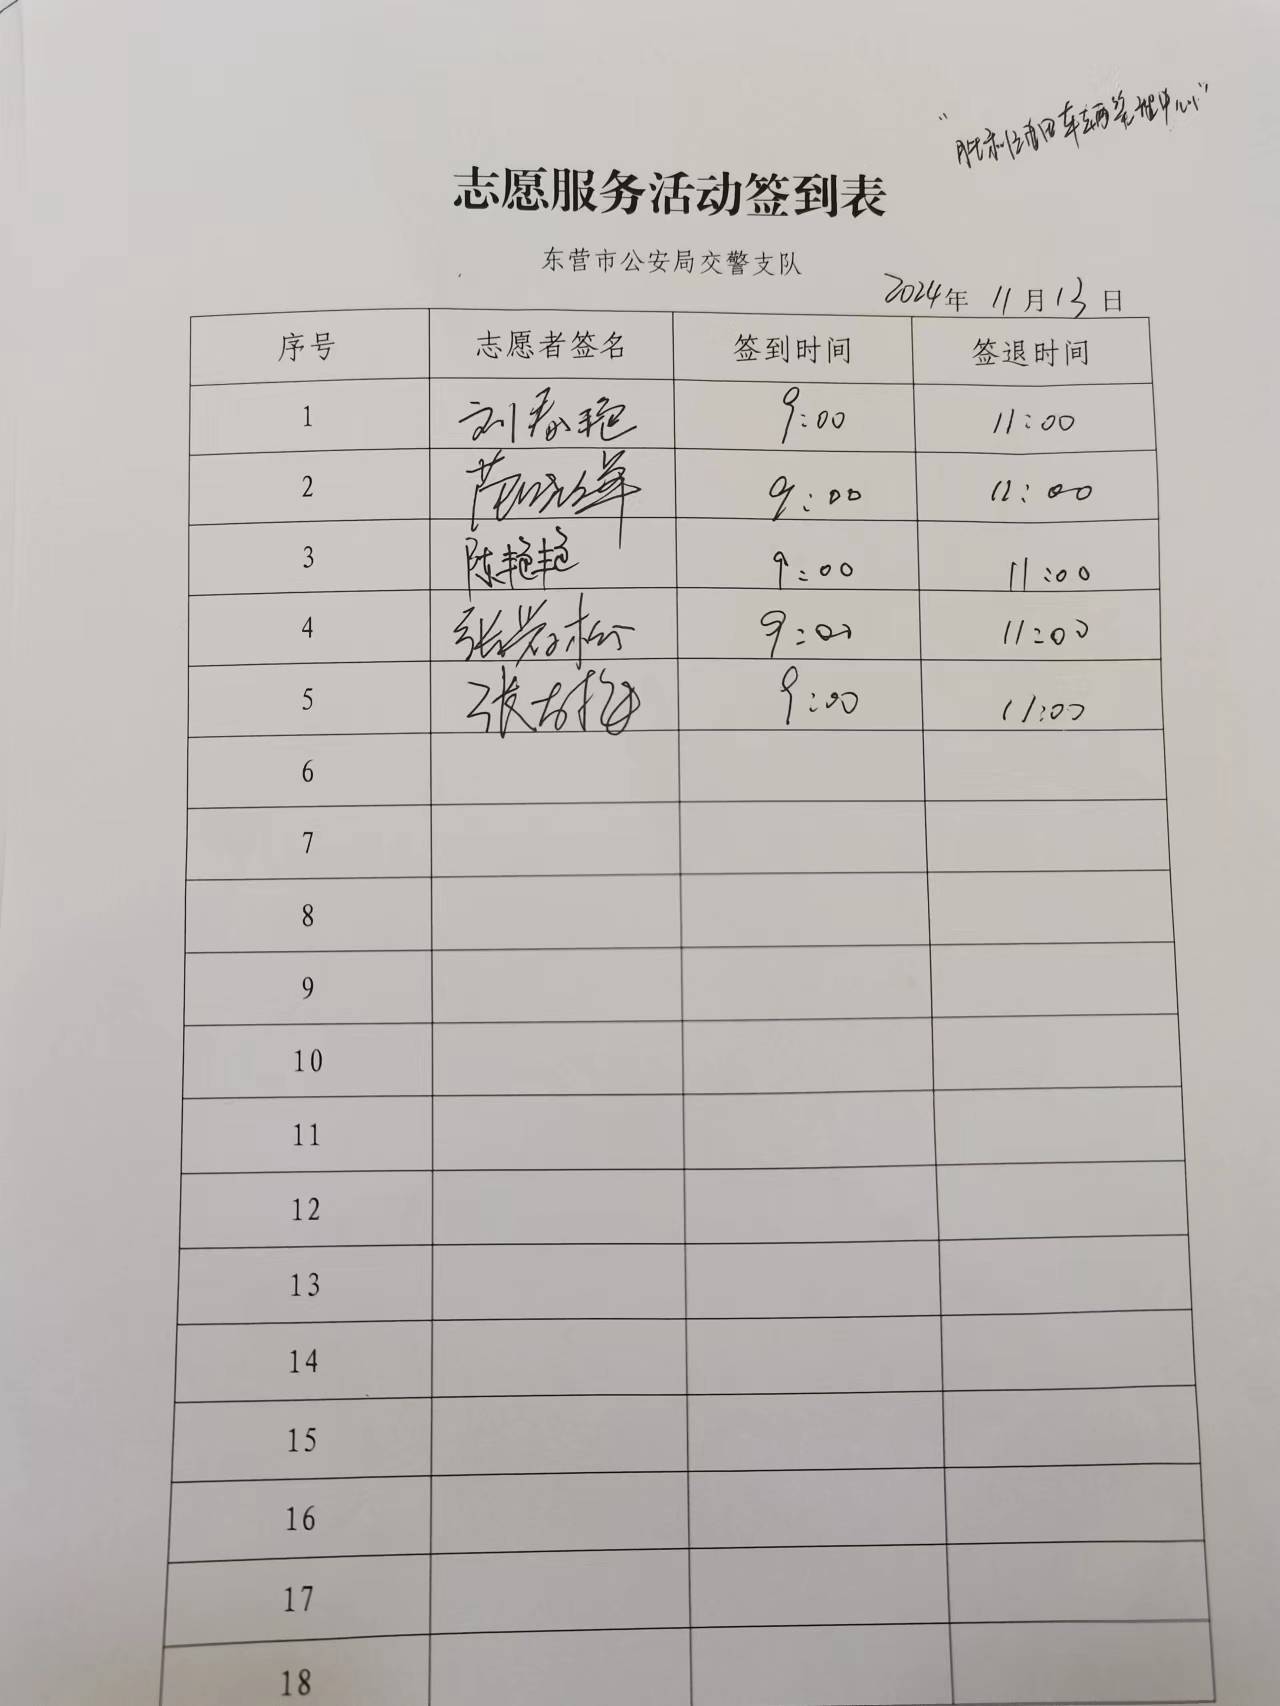 "胜利油田车辆管理中心"
志愿服务活动签到表
东营市公安局交警支队
2024年 11月13日
序号 志愿者签名 签到时间 签退时间
1 刘春艳 9:00 11:00
2 9:00 11:00
3 陈艳艳 9:00 11:00
4 张岩松 9:00 11:00
5 9:00 11:00
6
7
8
9
10
11
12
13
14
15
16
17
18